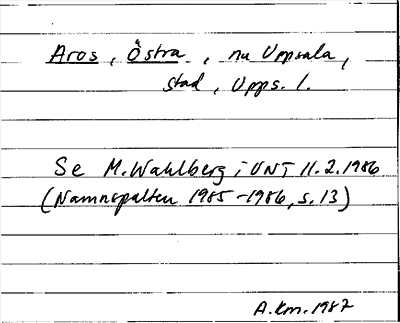 Aros, Östra, nu Uppsala,
stad, Upps. l.
Se M. Wahlberg i UNT 11.2.1986
(Namnspalten 1985-1986, s. 13)
A.km.1987